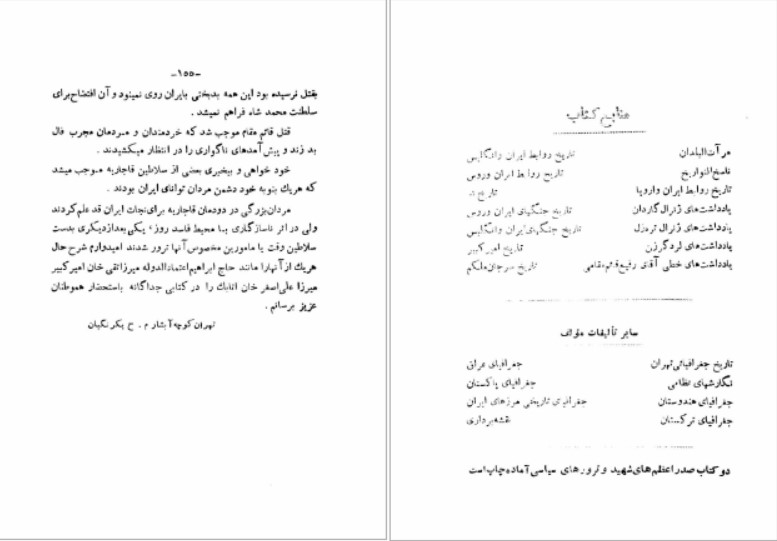 -۱۵۵-
بقتل نرسیده بود این همه بدبختی بایران روی نمینود و آن افتضاح برای
سلطنت محمد شاه فراهم نمیشد .
قتل قائم مقام موجب شد که خردمندان و مردمان مجرب فال
بد زند و پیش آمدهای ناگواری را در انتظار میکشیدند .
خود خواهی و بیخبری بعضی از سلاطین قاجاریه موجب میشد
که هریك بنوبه خود دشمن مردان توانای ایران بودند .
مردان بزرگی در دودمان قاجاریه برای نجات ایران قد علم کردند
ولی در اثر ناسازگاری با محیط فاسد روز ، یکی بعد از دیگری بدست
سلاطین وقت یا مامورین مخصوص آنها ترور شدند امیدوارم شرح حال
هریك از آنها را مانند حاج ابراهیم اعتمادالدوله میرزا تقی خان امیر کبیر
میرزا علی اصغر خان اتابك را در کتابی جداگانه باستحضار هموطنان
عزیز برسانم .
تهران کوچه آبشار م . ح
منابع کتاب
مرآت البلدان تاریخ روابط ایران وانگلیس
ناسخ التواریخ تاریخ روابط ایران وروس
تاریخ روابط ایران واروپا تاریخ
یادداشت‌های ژنرال گاردان تاریخ جنگهای ایران وروس
یادداشت‌های ژنرال ترزل تاریخ جنگهای ایران وانگلیس
یادداشت‌های لرد کرزن تاریخ امیر کبیر
یادداشت‌های خطی آقای رفیع قائم مقامی تاریخ سرجان ملکم
سایر تألیفات مؤلف
تاریخ جغرافیائی تهران جغرافیای عراق
نگارشهای نظامی جغرافیای پاکستان
جغرافیای هندوستان جغرافیای تاریخی مرزهای ایران
جغرافیای ترکستان نقشه برداری
دو کتاب صدر اعظم های شهید و ترور های سیاسی آماده چاپ است